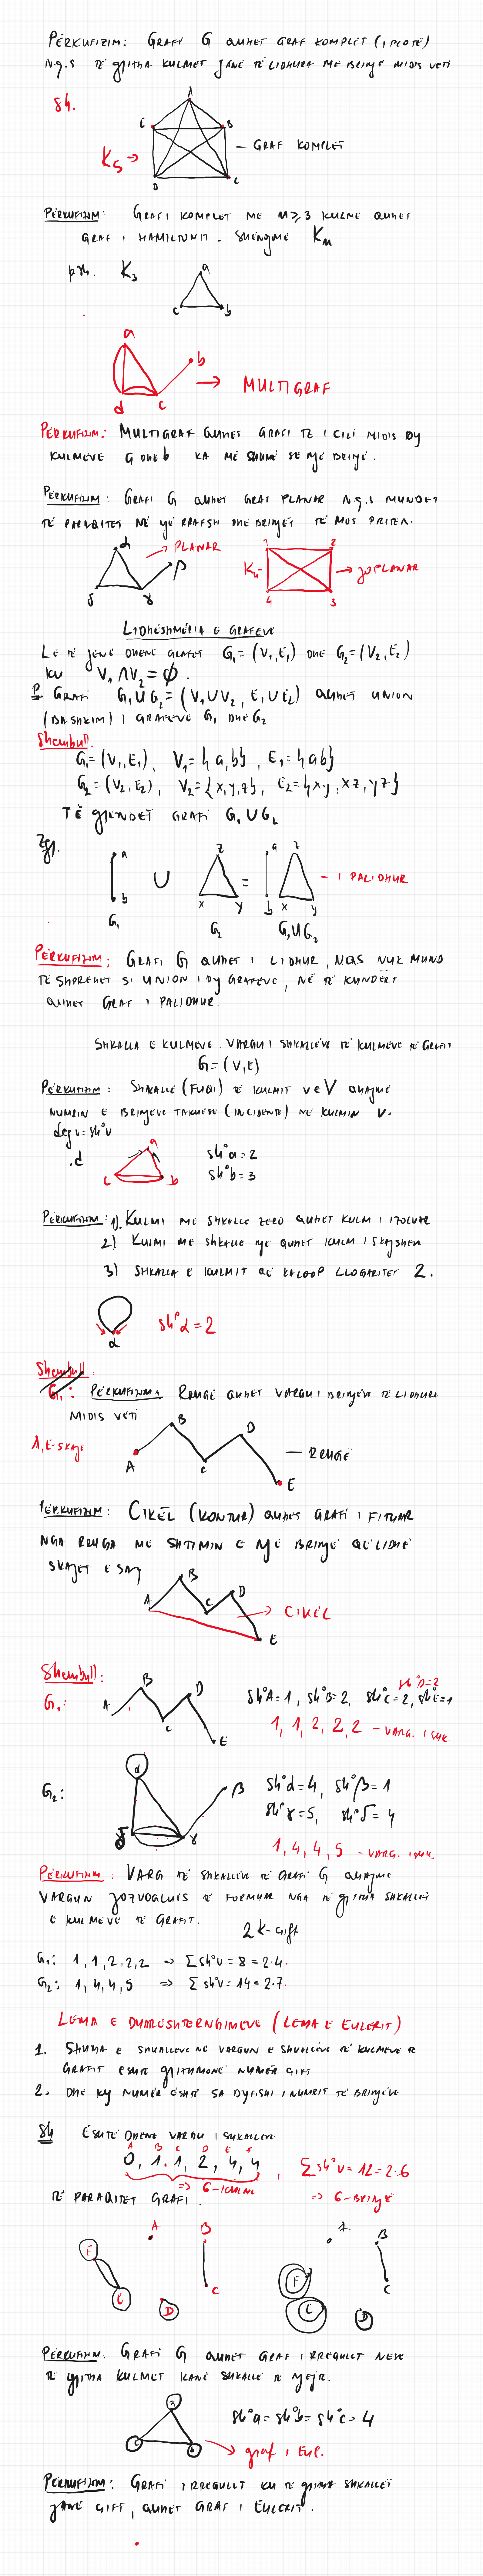 PËRKUFIZIM: GRAFI G QUHET GRAF KOMPLET (I PLOTË)
N.Q.S TË GJITHA KULMET JANË TË LIDHURA ME BRINJË MIDIS VETI
Sh.
A
E B
K5 → — GRAF KOMPLET
D C
PËRKUFIZIM: GRAFI KOMPLET ME n≥3 KULME QUHET
GRAF I HAMILTONIT. SHËNOJMË Kn
psh. K3
a
c b
a
b
→ MULTIGRAF
d c
PËRKUFIZIM: MULTIGRAF QUHET GRAFI TE I CILI MIDIS DY
KULMEVE a DHE b KA MË SHUMË SE NJË BRINJË.
PËRKUFIZIM: GRAFI G QUHET GRAF PLANAR N.Q.S MUNDET
TË PARAQITET NË NJË RRAFSH DHE BRINJËT TË MOS PRITEN.
α → PLANAR
β
δ γ
1 2
K4- → JOPLANAR
4 3
LIDHESHMËRIA E GRAFEVE
LE TË JENË DHENË GRAFET G1=(V1,E1) DHE G2=(V2,E2)
KU V1∩V2=∅.
P GRAFI G1∪G2=(V1∪V2, E1∪E2) QUHET UNION
(BASHKIM) I GRAFEVE G1 DHE G2
Shembull.
G1=(V1,E1), V1={a,b}, E1={ab}
G2=(V2,E2), V2={x,y,z}, E2={xy, xz, yz}
TË GJENDET GRAFI G1∪G2
Zgj.
a z a z
∪ = — I PALIDHUR
b x y b x y
G1 G2 G1∪G2
PËRKUFIZIM: GRAFI G QUHET I LIDHUR, NQS NUK MUND
TË SHPREHET SI UNION I DY GRAFEVE, NË TË KUNDËRT
QUHET GRAF I PALIDHUR.
SHKALLA E KULMEVE. VARGU I SHKALLËVE TË KULMEVE TË GRAFIT
G=(V,E)
PËRKUFIZIM: SHKALLË (FUQI) TË KULMIT v∈V QUAJMË
NUMRIN E BRINJËVE TAKUESE (INCIDENTE) NË KULMIN V.
deg v = sh°v
.d a sh°a=2
c b sh°b=3
PËRKUFIZIM: 1). KULMI ME SHKALLË ZERO QUHET KULM I IZOLUAR
2) KULMI ME SHKALLË NJË QUHET KULM I SKAJSHËM
3) SHKALLA E KULMIT QË KA LOOP LLOGARITET 2.
sh°α=2
α
Shembull
G1: PËRKUFIZIM: RRUGË QUHET VARGU I BRINJËVE TË LIDHURA
MIDIS VETI
A,E-SKAJE
A B C D E — RRUGË
PËRKUFIZIM: CIKËL (KONTUR) QUHET GRAFI I FITUAR
NGA RRUGA ME SHTIMIN E NJË BRINJË QË LIDHË
SKAJET E SAJ
A B C D E → CIKËL
Shembull:
G1: A B C D E
sh°D=2
sh°A=1, sh°B=2, sh°C=2, sh°E=1
1, 1, 2, 2, 2 - VARG. I SHK.
G2: α β γ δ
sh°α=4, sh°β=1
sh°γ=5, sh°δ=4
1,4,4,5 - VARG. I SHK.
PËRKUFIZIM: VARG TË SHKALLËVE TË GRAFI G QUAJMË
VARGUN JOZVOGLUES TË FORMUAR NGA TË GJITHA SHKALLËT
E KULMEVE TË GRAFIT.
2K-çift
G1: 1,1,2,2,2 => ∑sh°v=8=2·4.
G2: 1,4,4,5 => ∑sh°v=14=2·7.
LEMA E DUARSHTËRNGIMEVE (LEMA E EULERIT)
1. SHUMA E SHKALLËVE NË VARGUN E SHKALLËVE TË KULMEVE TË
GRAFIT ËSHTË GJITHMONË NUMËR ÇIFT
2. DHE KY NUMËR ËSHTË SA DYFISHI I NUMRIT TË BRINJËVE
Sh ËSHTË DHËNË VARGU I SHKALLËVE
A B C D E F
0, 1, 1, 2, 4, 4, ∑sh°v=12=2·6
=> 6-KULME => 6-BRINJË
TË PARAQITET GRAFI.
F E A B C D
F E A B C D
PËRKUFIZIM. GRAFI G QUHET GRAF I RREGULLT NËSE
TË GJITHA KULMET KANË SHKALLË TË NJEJTË.
a
sh°a=sh°b=sh°c=4
c b
→ graf i Eul.
PËRKUFIZIM: GRAFI I RREGULLT KU TË GJITHA SHKALLËT
JANË ÇIFT, QUHET GRAF I EULERIT.